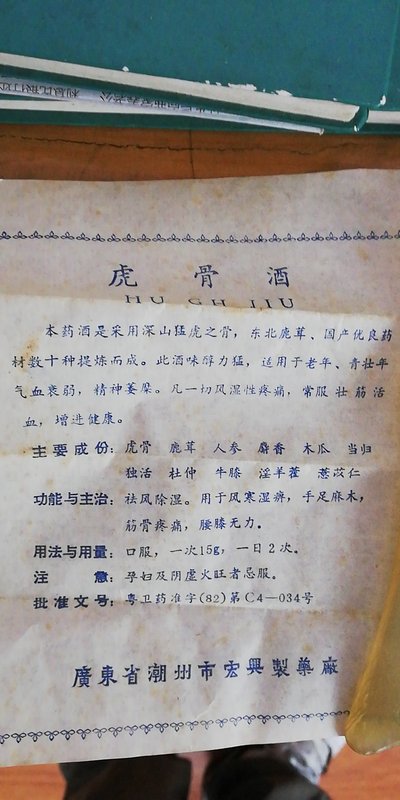 虎骨酒
HU GH JIU
本药酒是采用深山猛虎之骨,东北鹿茸、国产优良药
材数十种提炼而成。此酒味醇力猛,适用于老年、青壮年
气血衰弱,精神萎糜。凡一切风湿性疼痛,常服壮筋活
血,增进健康。
主要成份:虎骨 鹿茸 人参 麝香 木瓜 当归
独活 杜仲 牛膝 淫羊藿 薏苡仁
功能与主治:祛风除湿。用于风寒湿痹,手足麻木,
筋骨疼痛,腰膝无力。
用法与用量:口服,一次15g,一日2次。
注意:孕妇及阴虚火旺者忌服。
批准文号:粤卫药准字(82)第C4—034号
廣東省潮州市宏興製藥廠